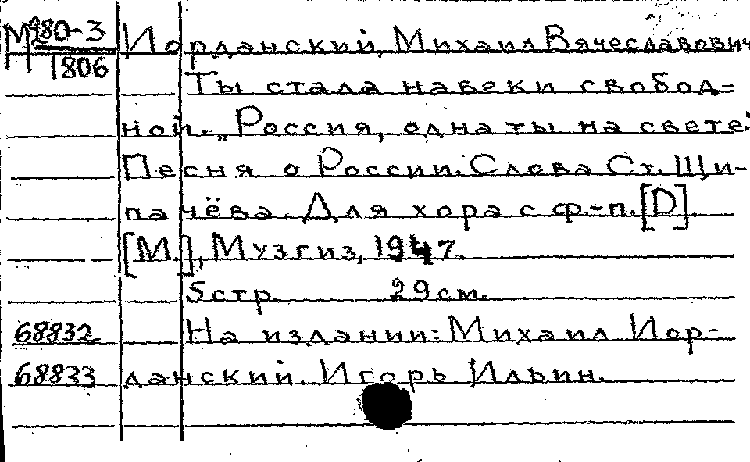 М 980-3
1806
Иорданский, Михаил Вячеславович
Ты стала навеки свобод-
ной. „Россия, одна ты на свете."
Песня о России. Слова Ст. Щи-
пачёва. Для хора с ф.-п. [D].
[М.], Музгиз, 1947.
5 стр. 29 см.
68832 На издании: Михаил Иор-
68833 данский. Игорь Ильин.